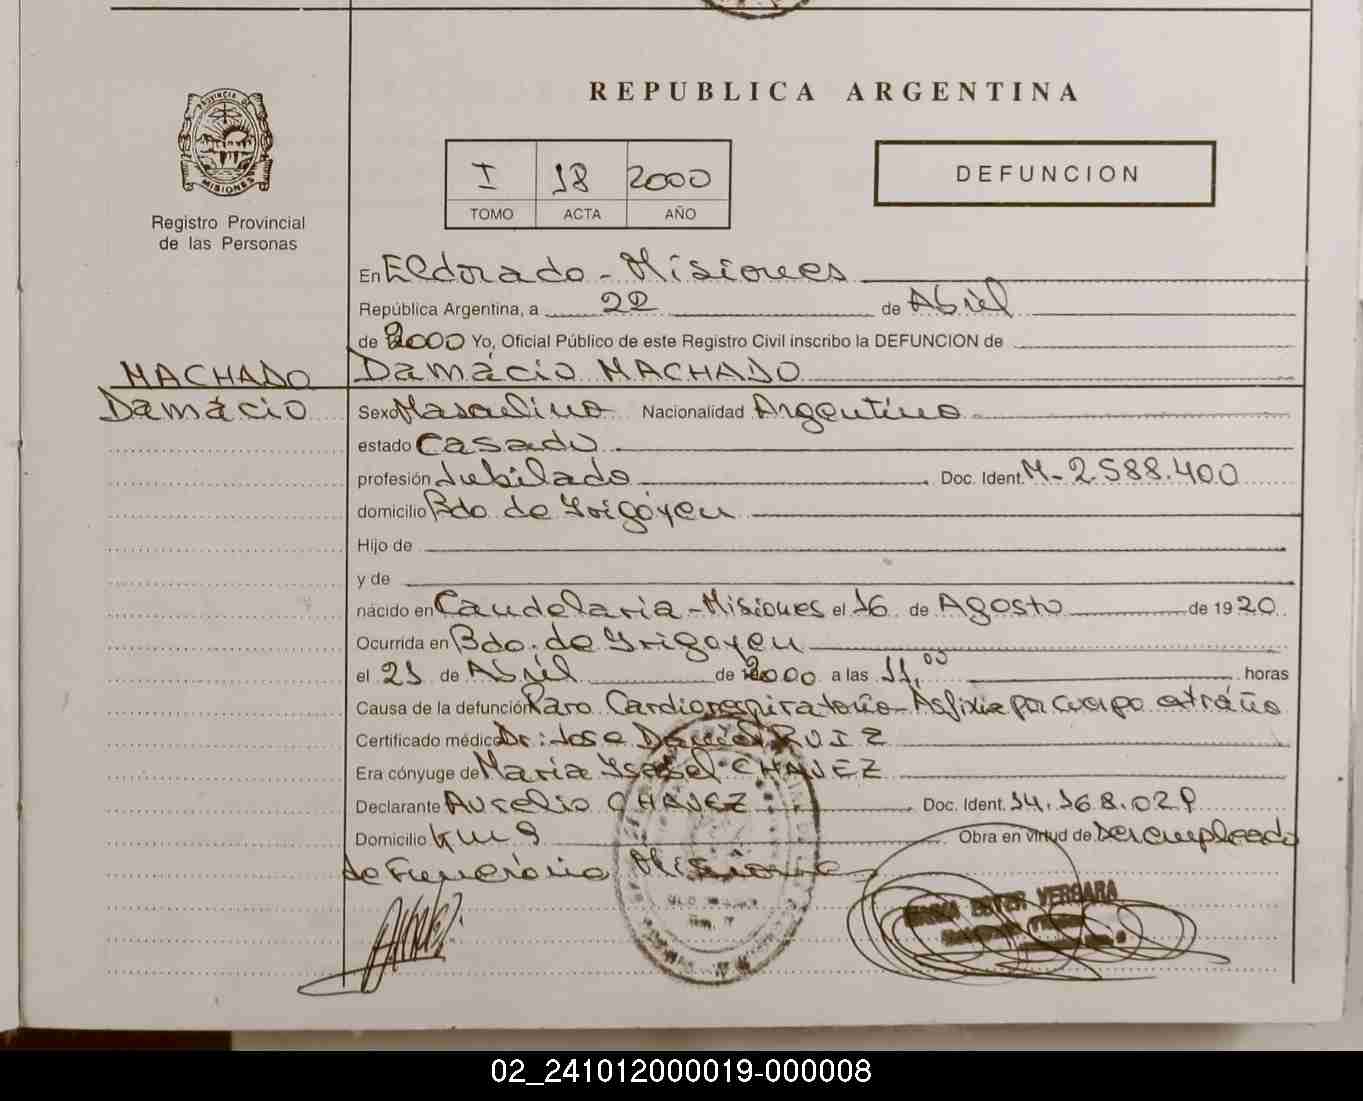 REPUBLICA ARGENTINA
I 18 2000
TOMO ACTA AÑO
DEFUNCION
PROVINCIA DE
MISIONES
Registro Provincial
de las Personas
En Eldorado - Misiones
República Argentina, a 22 de Abril
de 2000 Yo, Oficial Público de este Registro Civil inscribo la DEFUNCION de
Damácio MACHADO
MACHADO
Damácio
Sexo Masculino Nacionalidad Argentino
estado Casado
profesión Jubilado Doc. Ident. M-2.588.400
domicilio Bdo de Irigóyen
Hijo de
y de
nácido en Candelaria - Misiones el 16 de Agosto de 1920
Ocurrida en Bdo. de Irigoyen
el 21 de Abril de 2000 a las 11,00 horas
Causa de la defunción Paro Cardiorespiratorio - Asfixia por cuerpo extráño
Certificado médico Dr: Jose Daniel RUIZ
Era cónyuge de María Isabel CHAVEZ
Declarante Aurelio CHAVEZ Doc. Ident. 14.168.029
Domicilio Km 9 Obra en virtud de Ser empleado
de Funerária Misiones
ESTER VERGARA
02_241012000019-000008